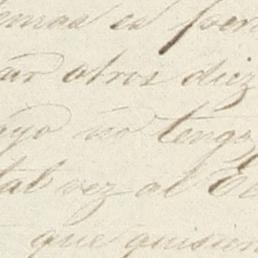 emas es fuer
ar otros diez
ayo no tengo
tal vez al
que quisier